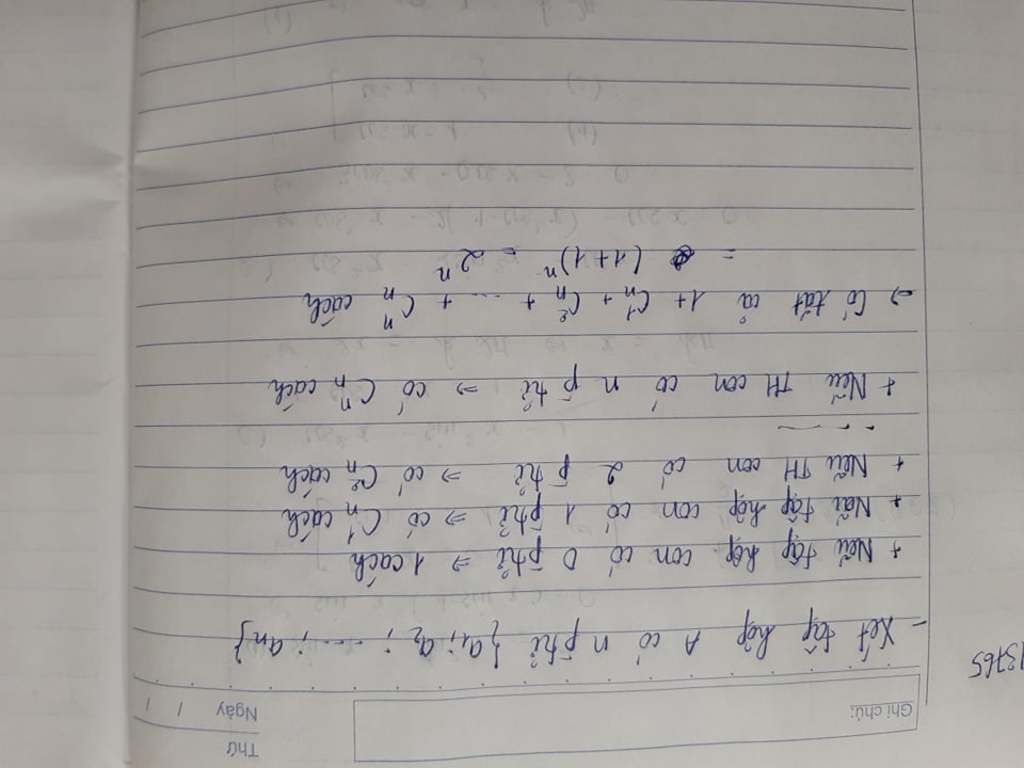 Thứ
Ngày / /
Ghi chú:
13765
- Xét tập hợp A có n phtử {a₁; a₂; ...; an}
+ Nếu tập hợp con có 0 phtử ⇒ 1 cách
+ Nếu tập hợp con có 1 phtử ⇒ có C¹n cách
+ Nếu TH con có 2 phtử ⇒ có C²n cách
....
+ Nếu TH con có n phtử ⇒ có Cⁿn cách
⇒ Có tất cả 1 + C¹n + C²n + ... + Cⁿn cách
= (1+1)ⁿ = 2ⁿ